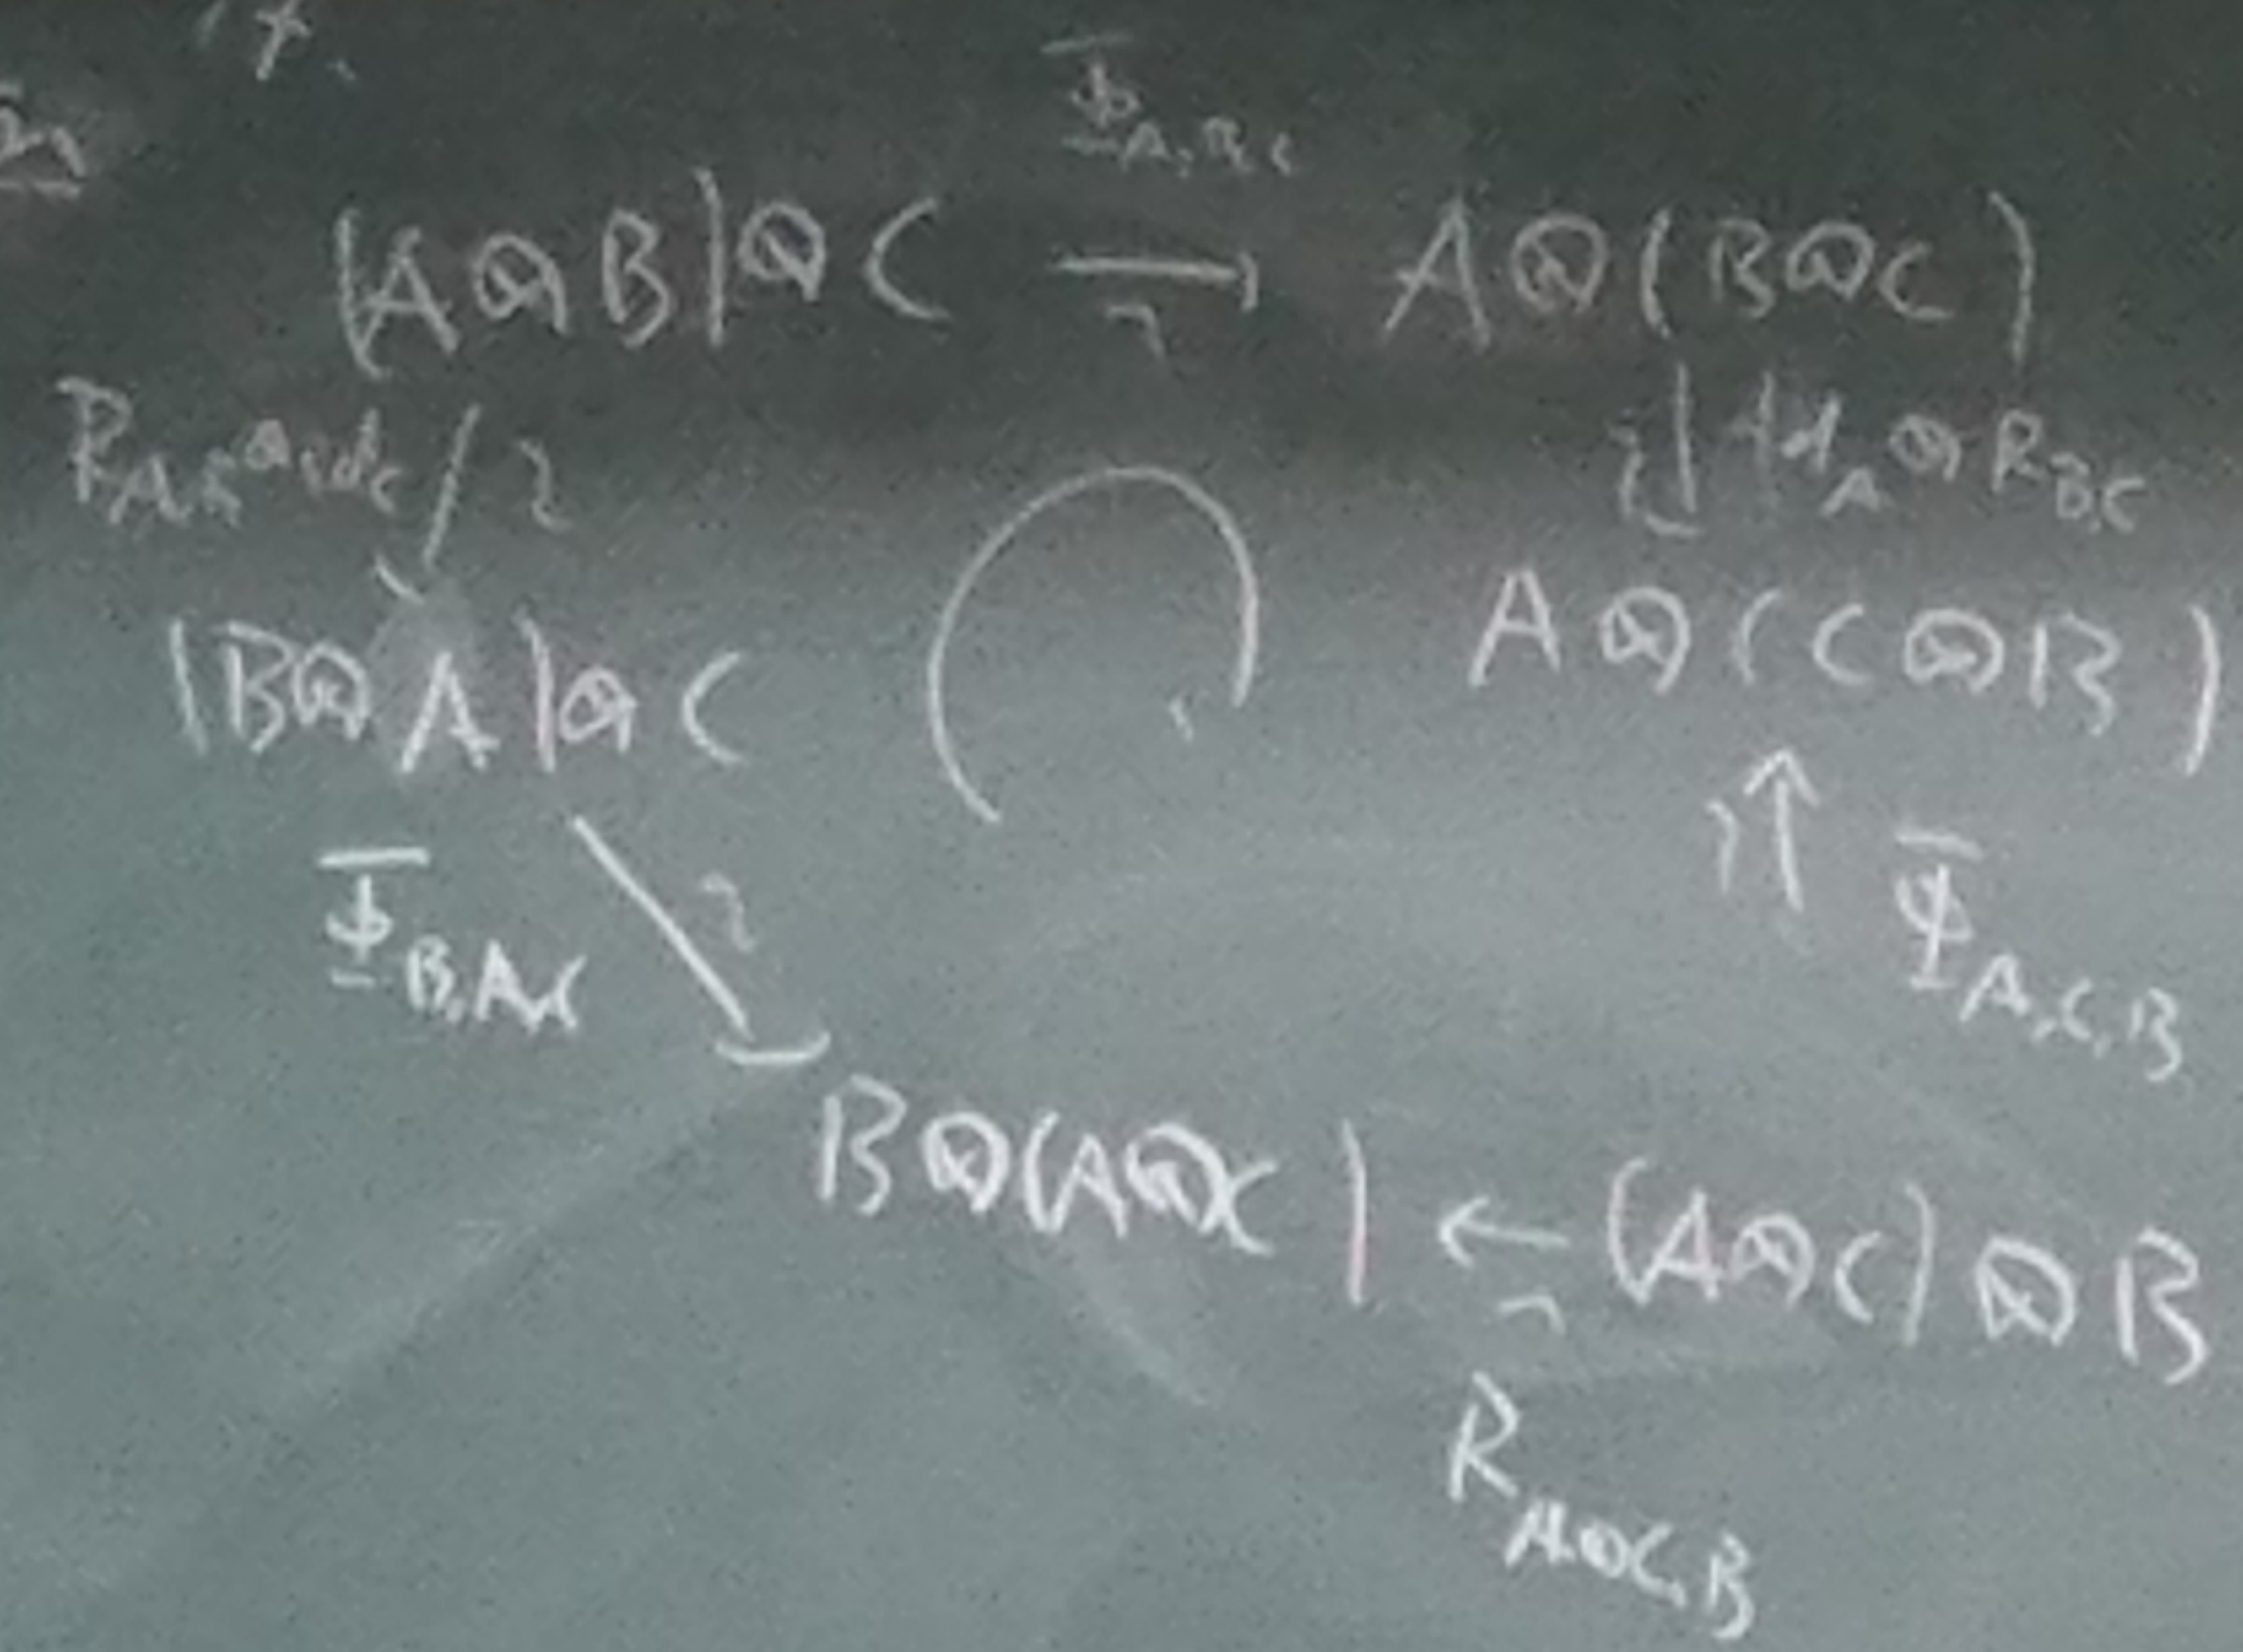 Φ_{A,B,C}
(A⊗B)⊗C → A⊗(B⊗C)
R_{A,B}⊗id_C ~ ~ id_A⊗R_{B,C}
(B⊗A)⊗C A⊗(C⊗B)
Φ_{B,A,C} ~ ~ Φ_{A,C,B}
B⊗(A⊗C) ← (A⊗C)⊗B
~
R_{A⊗C,B}